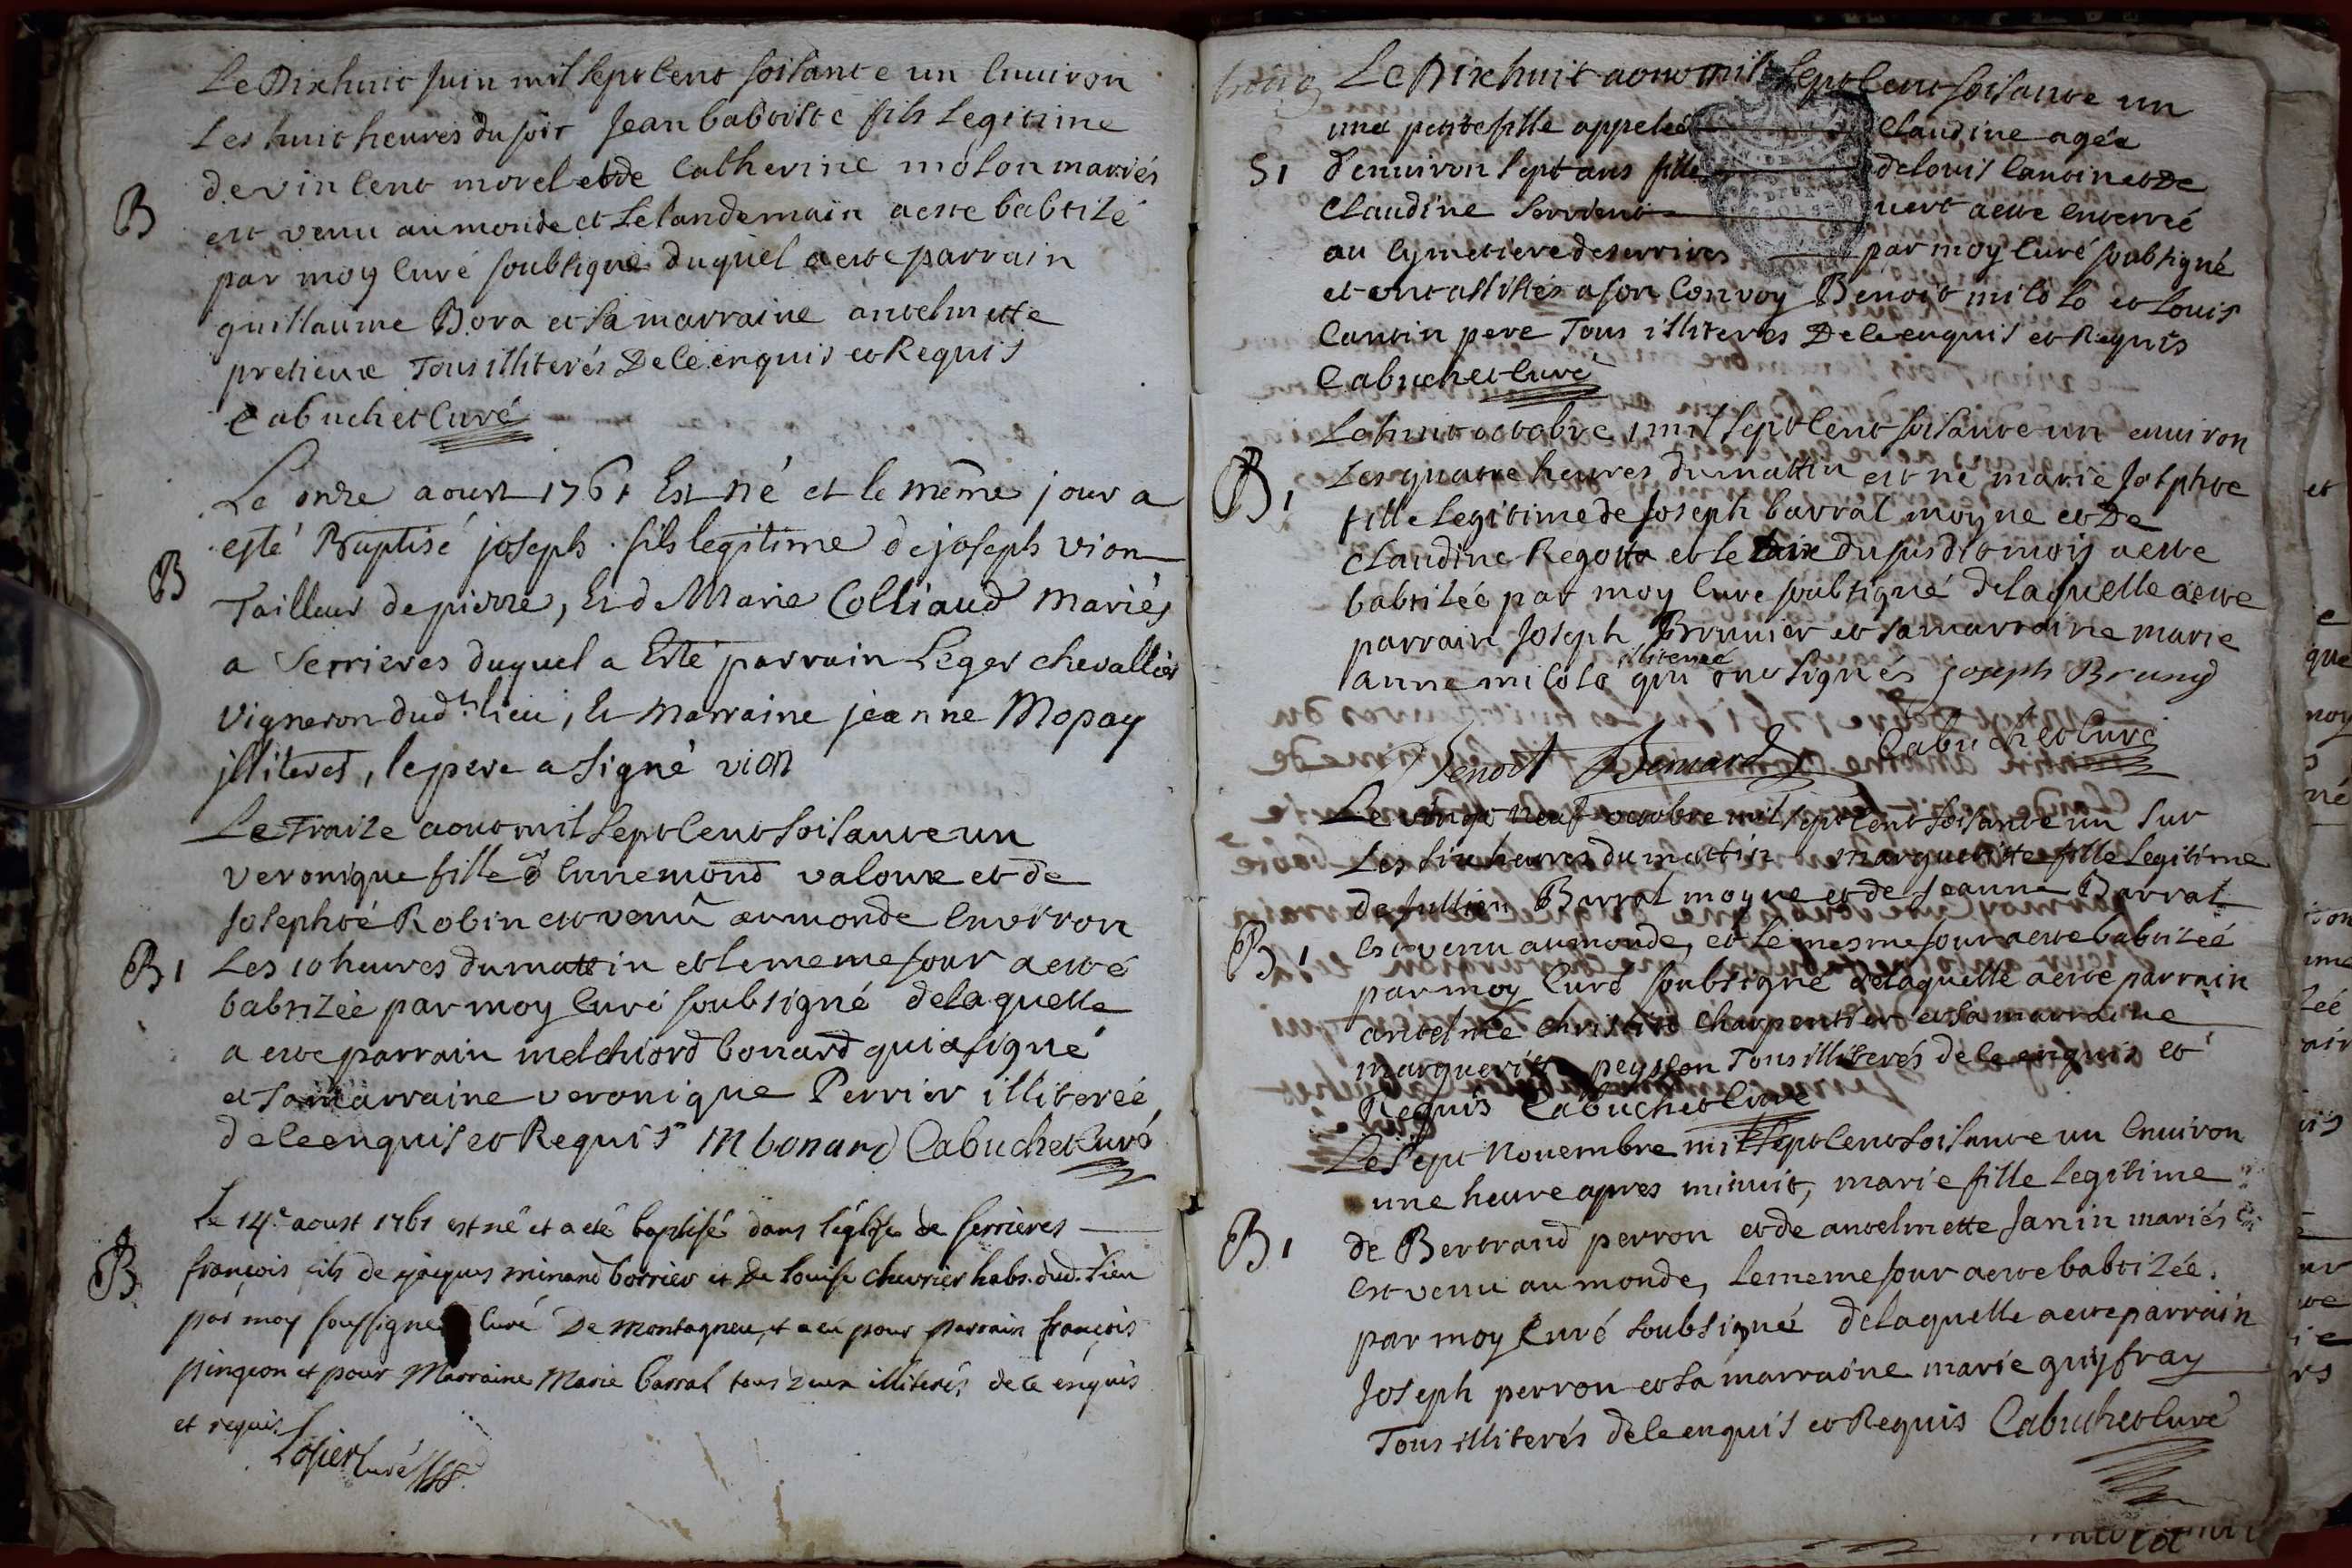 Le Dixhuit Juin mil sept cent soisante un environ
Les huit heures du soir Jean babtiste fils Legitime
de vincent morel et de Catherine molon mariés
B
est venu au monde et Le landemain a este babtizé
par moy curé soubsigné duquel a este parrain
guillaume Bora et sa marraine antelmette
pretieux Tous illiterés De ce enquis et Requis
Cabuchet curé
Le onze aoust 1761 Est né et le même jour a
esté Baptisé joseph fils legitime de joseph vion
B
Tailleur de pierre, Et de Marie Colliaud Mariés
a Serrieres duquel a Esté parrain Leger chevallier
vigneron dudt lieu, Et Marraine jeanne Mopay
jlliteres, le pere a signé vion
Le Traize aout mil sept cent soisante un
veronique fille d'Ennemond valoux et de
Josephte Robin est venû au monde environ
B 1 Les 10 heures du mattin et le meme jour a esté
babtizée par moy curé soubsigné de laquelle
a este parrain melchiord bonard qui a signé
et sa marraine veronique Perrier illiterée
de ce enquis et Requis M bonard Cabuchet Curé
Le 14e aoust 1761 est né et a eté baptisé dans l'église de serrieres
B
françois fils de jacques minand borrier et De Louise chevrier habs. dud. Lieu
par moy soussigné curé De Montagneu, et a eu pour parrain françois
pingeon et pour Marraine Marie barral tous deux illiterés de ce enquis
et requis.
Losier curé
Le Dixhuit aout mil sept cent soisante un
une petite fille appeleé Claudine agée
S 1 d'environ sept ans fille de Louis Cantin et De
Claudine a este enterré
au cymetiere de serrieres par moy curé soubsigné
et ont assistés a son Convoy Benoit milolo et Louis
Cantin pere Tous illiteres De ce enquis et Requis
Cabuchet curé
Le huit octobre mil sept cent soisante un environ
B 1
Les quatre heures du mattin est né marie Josephte
fille Legitime de Joseph barral moyne et De
Claudine Regotta et le Dix du susdit mois a este
babtizée par moy curé soubsigné de laquelle a este
parrain Joseph Brunier et sa marraine marie
illiterée
anne milolo qui ont signés joseph Bruny
Benoit Bernard Cabuchet Curé
Le vingt neuf octobre mil sept cent soisante un sur
Les six heures du mattin margueritte fille Legitime
de Jullien Barral moyne et de Jeanne Barral
B 1
est venu au monde, et le mesme jour a este babtizeé
par moy curé soubsigné de laquelle a este parrain
antelme Christin Charpentier et sa marraine
margueritte peysson Tous illiterés de ce enquis et
Requis Cabuchet Curé
Le sept Novembre mil sept cent soisante un environ
une heure apres minuit, marie fille Legitime
B 1
de Bertrand perron et de antelmette Janin mariés
est venu au monde, Le meme jour a este babtizée.
par moy curé soubsigné de laquelle a este parrain
Joseph perron et sa marraine marie guiffray
Tous illiterés de ce enquis et Requis Cabuchet curé